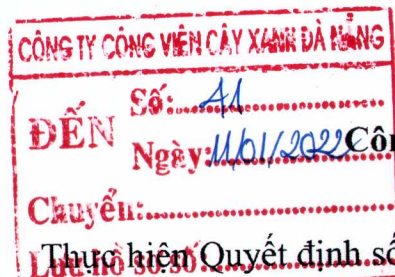 CÔNG TY CÔNG VIÊN CÂY XANH ĐÀ NẴNG
ĐẾN
Số: 41
Ngày: 11/01/2022
Côn
Chuyển:
Lưu hồ sơ số
Thực hiện Quyết định số